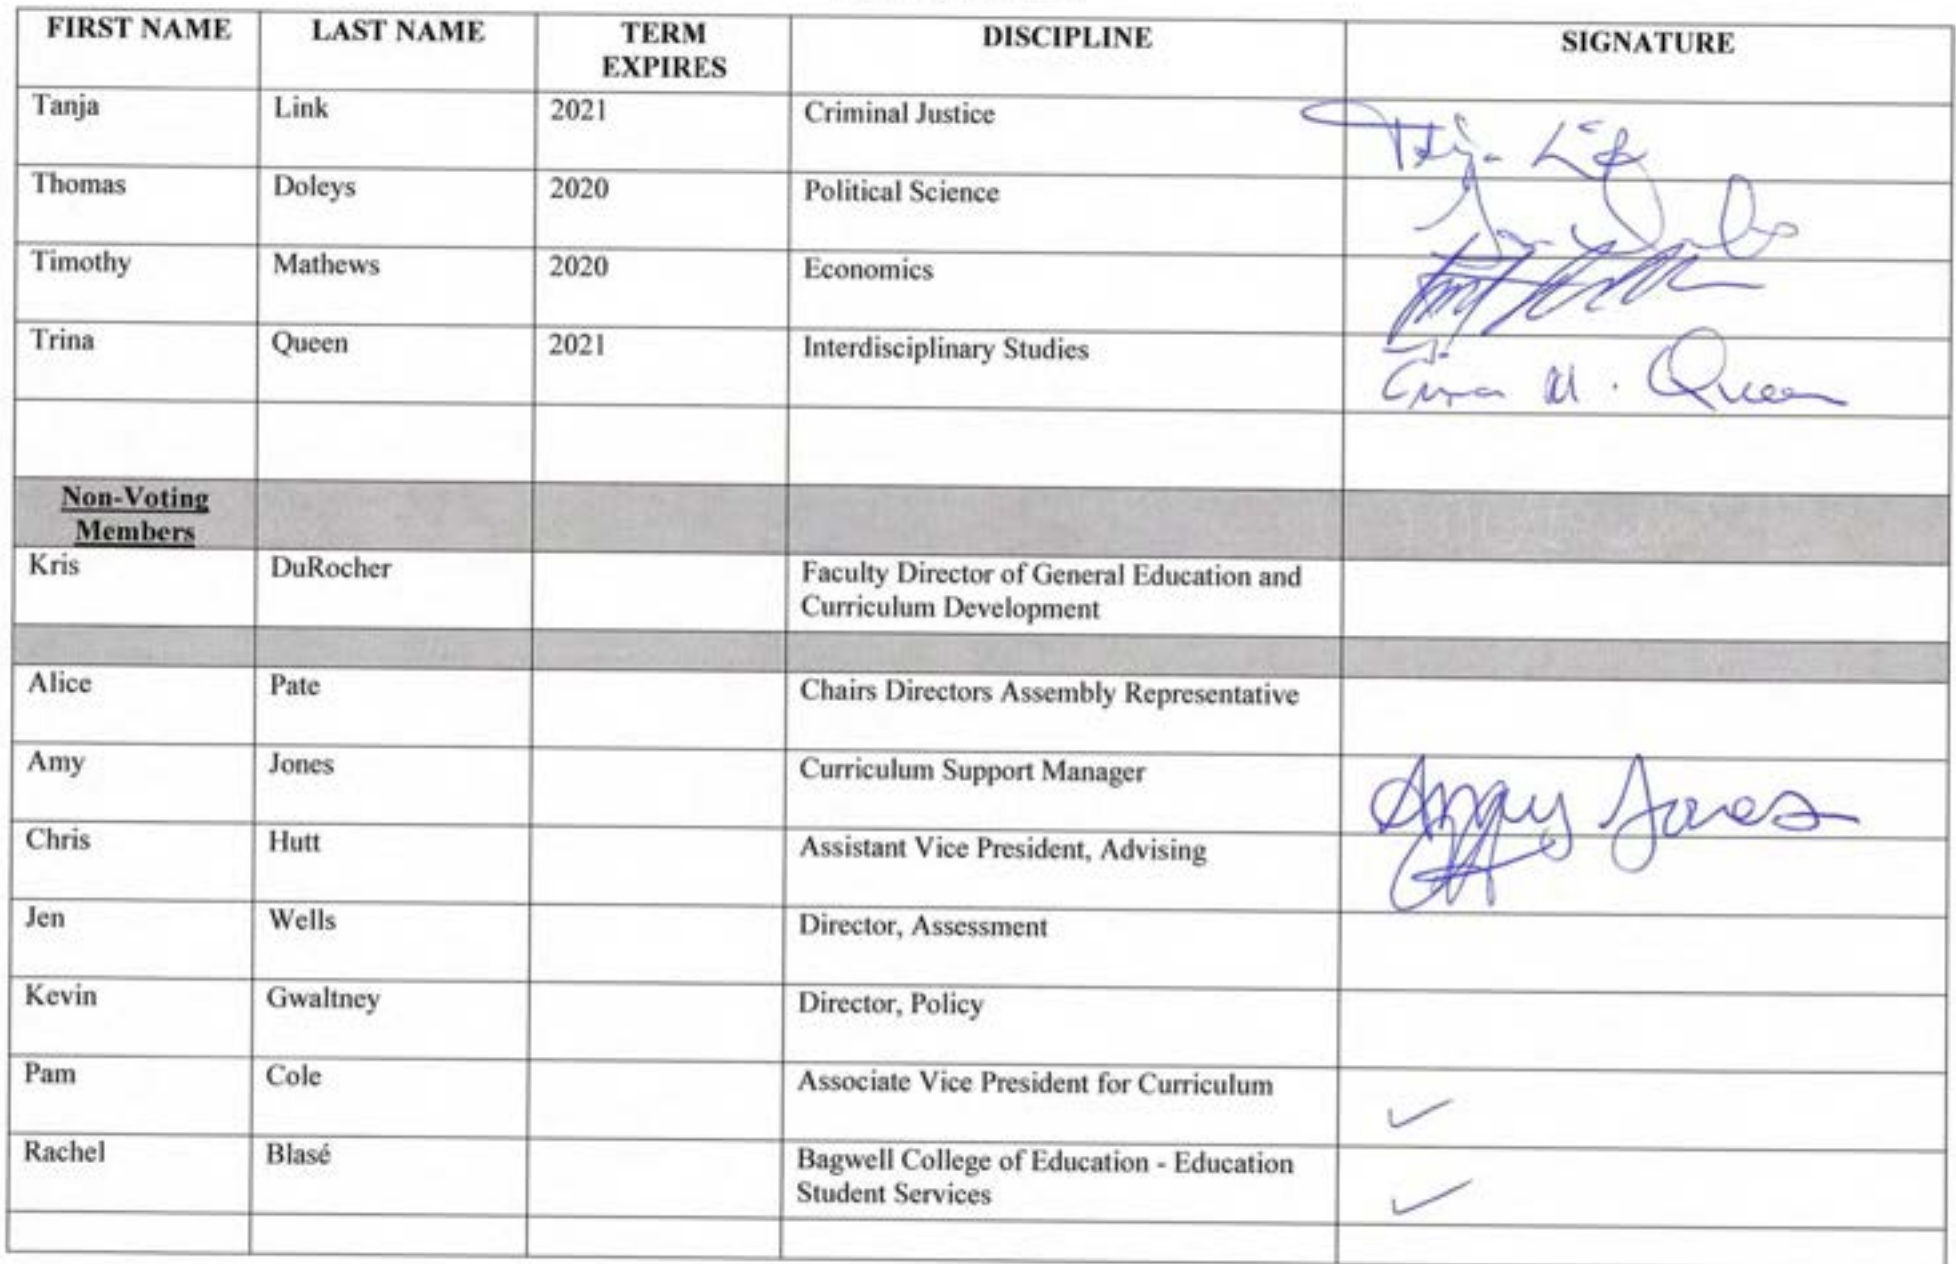 FIRST NAME LAST NAME TERM EXPIRES DISCIPLINE SIGNATURE
Tanja Link 2021 Criminal Justice
Thomas Doleys 2020 Political Science
Timothy Mathews 2020 Economics
Trina Queen 2021 Interdisciplinary Studies M. Queen
Non-Voting
Members
Kris DuRocher Faculty Director of General Education and
Curriculum Development
Alice Pate Chairs Directors Assembly Representative
Amy Jones Curriculum Support Manager Jones
Chris Hutt Assistant Vice President, Advising
Jen Wells Director, Assessment
Kevin Gwaltney Director, Policy
Pam Cole Associate Vice President for Curriculum ✓
Rachel Blasé Bagwell College of Education - Education
Student Services ✓